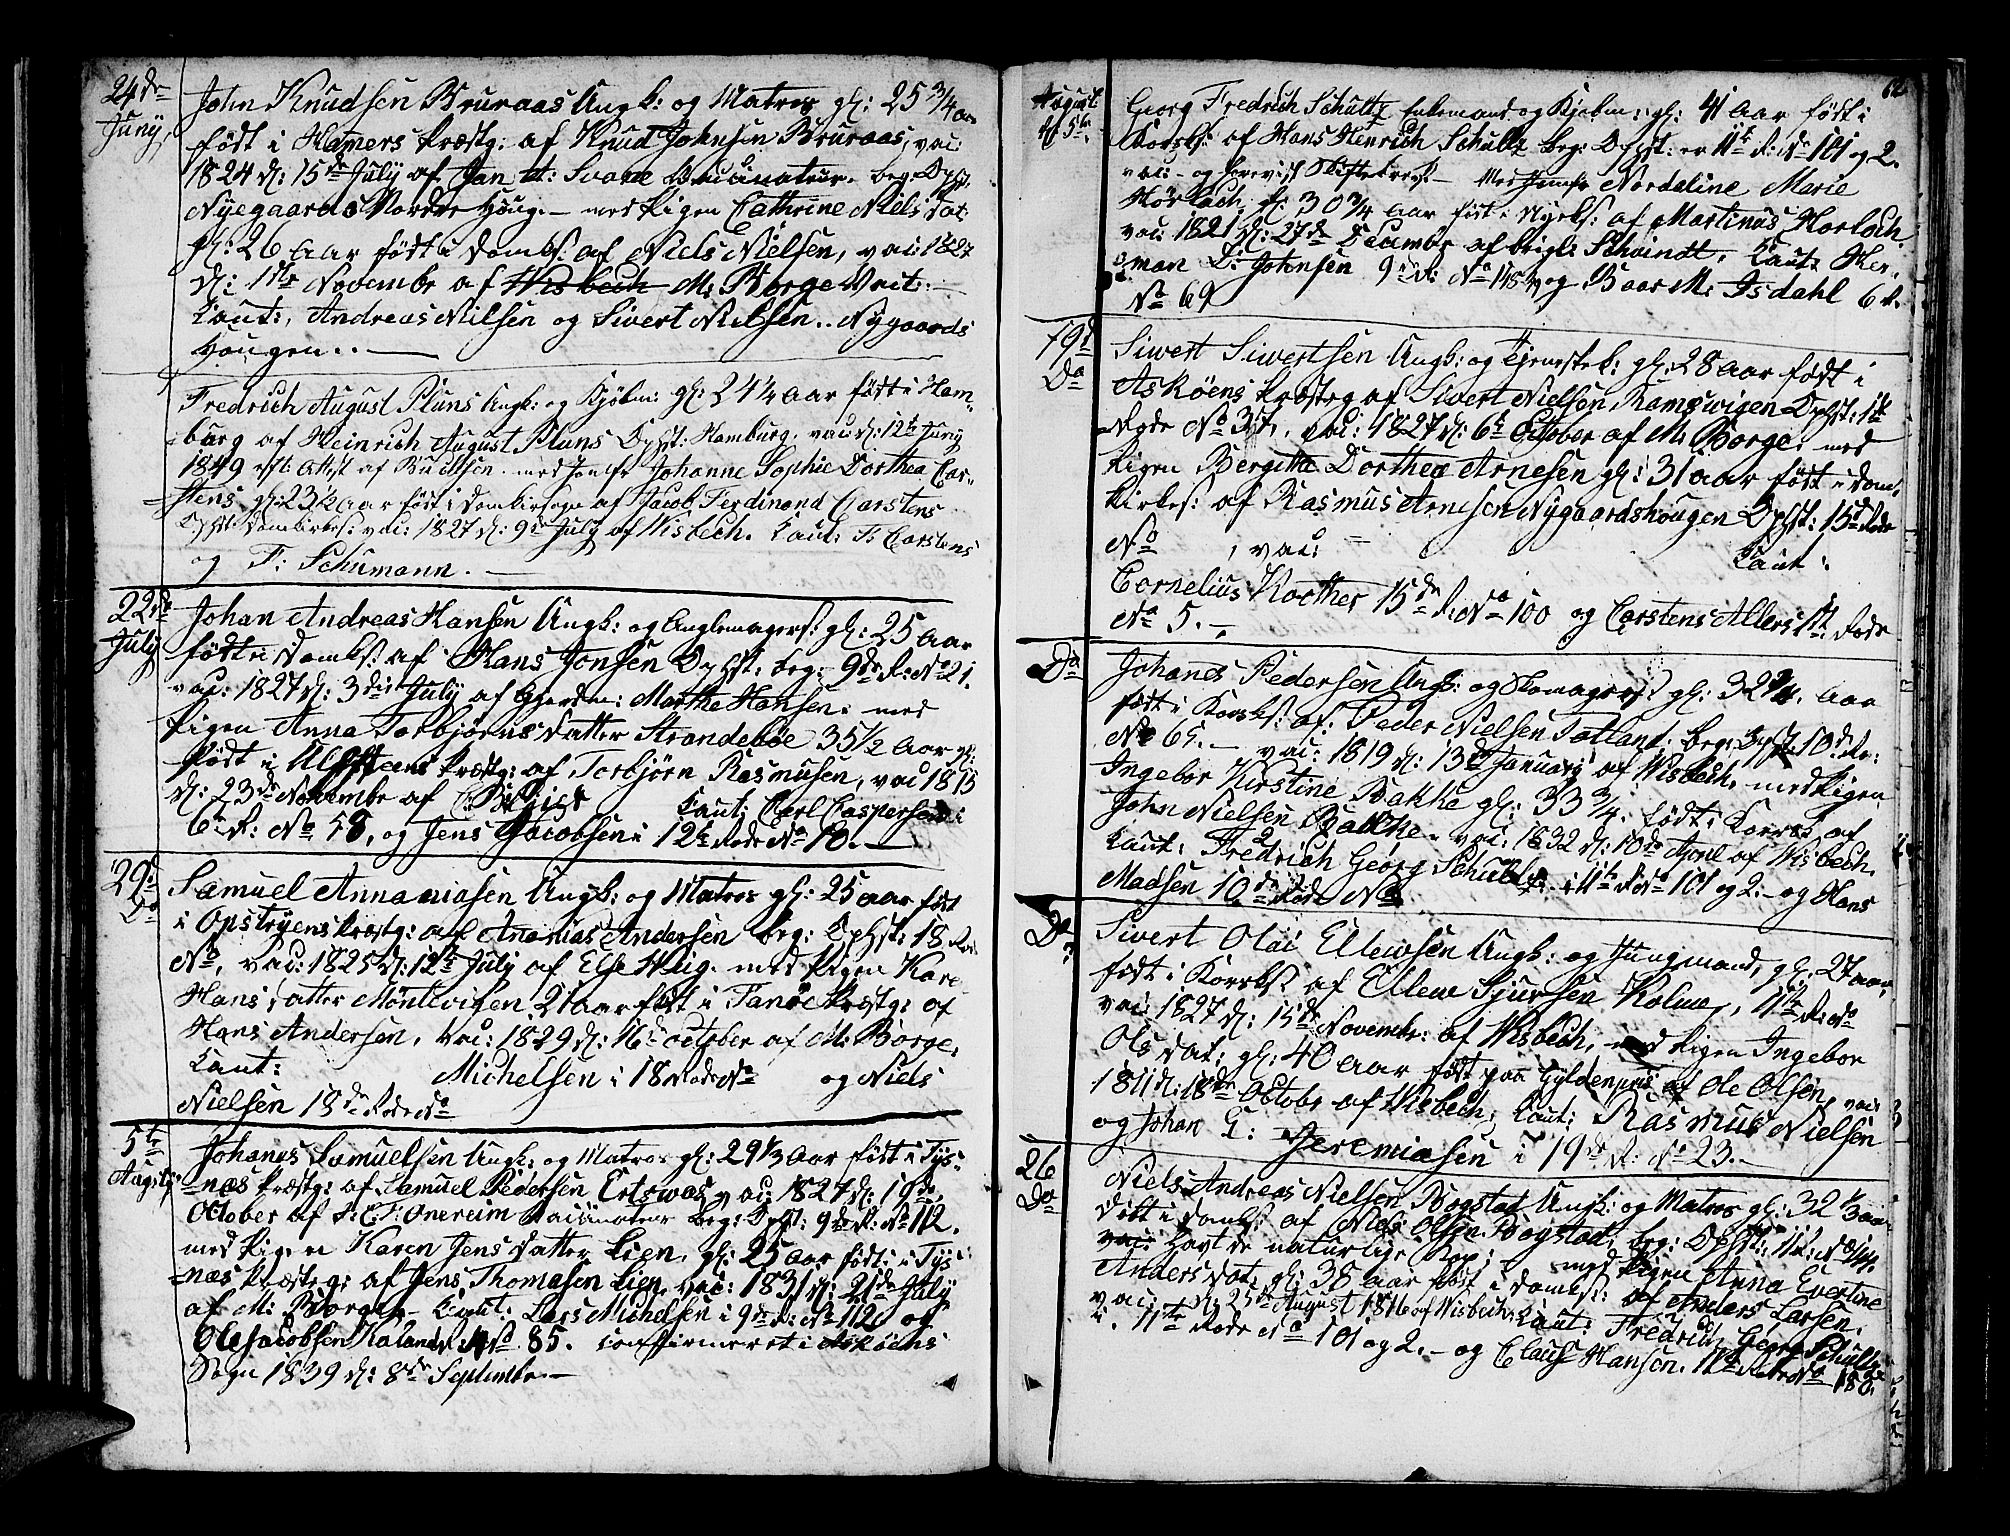 24de
Juny,
John Knudsen Bruraas Ungk: og Matros gl: 25 3/4 aar
født i Hamers Præstg: af Knud Johnsen Bruraas, vac:
1824 d: 15de July af Jan H: Svane beg: Dpst.
Nyegaards Nordre Houg. — med Pigen Cathrine Niels Dat
gl: 26 Aar født i Domks: af Niels Nielsen, vac: 1827
d: 1ste Novembr af Wisbech M: Borge
Caut:, Andreas Nilsen og Sivert Nielsen.. Nygaards
Hougen.. —
Fredrich August Pluns Ungk: og Kjøbm: gl: 24 1/4 Aar født i Ham-
burg af Heinrich August Pluns Dpst: Hamburg. vac: d: 12te Juny
1849 Attest af med Jomfr Johanne Sophie Dorthea Car-
stens gl: 23 1/2 Aar født i Domkirsogn af Jacob Ferdinand Carstens
Domkirkes: vac: 1827 d: 9de July af Wisbech. Caut: F: Carstens
og F: Schumann. —
22de
July
Johan Andreas Hansen Ungk: og gl: 25 Aar
født i Domks: af Hans Jonsen Dpst: beg: 9de R: No 21.
vac: 1827 d: 3die July af Gjordm: Marthe Hansen: med
Pigen Anna Torbjørns Datter Strandebøe 35 1/2 Aar gl:
født i Præstg: af Torbjørn Rasmusen, vac 1815
d: 23de Novembr af Caut: Carl Caspersen i
6te R: No 58, og Jens Jacobsen i 12te Rode No 10. —
29de
Do
Samuel Annaniasen Ungk: og Matros gl: 25 Aar født
i Opstryens Præstg: af Ananias Andersen beg: Dpst: 18 Rode
No, vac: 1825 d: 12te July af Else Heig. med Pigen Kare
Hans Datter Møntevigen 21 Aar født i Fanøe Præstg: af
Hans Andersen, Vac: 1829 d: 16 October af M: Borge,
Caut: Michelsen i 18 Rode No og Niels
Nielsen 18de Rode No
5te
Augsts
Johanes Samuelsen Ungk: og Matros gl: 29 1/3 Aar født i Tys-
næs Præstg: af Samuel Pedersen Ertswaag vac: 1827 d: 19de
October af Vacinateur beg: Dpst: 9de R: No 112.
med Pigen Karen Jens Datter Lien, gl: 25 Aar født: i Tys-
næs Præsteg: af Jens Thomasen Lien, vac: 1831 d: 21de July
af M: Borge — Caut: Lars Michelsen i 9de R: No 112 og
Ole Jacobsen No 85. confirmeret i Askøens
Sogn 1839 d: 8de Septembr. —
62
August
d 5te
Georg Fredrich Schultz Enkemand og Kjøbm: gl: 41 Aar født i
Korsk: af Hans Henrich Schultz beg: Dpst: er 11te R: No 101 og 2.
vac: og forevist Skiftebrev — Med Jomfr Nordeline Marie
Hørloch gl: 30 3/4 Aar født i Nyeks: af Martinus Horloch.
vac: 1821 d: 27de Decembr af Schvindt, Caut: Her-
man D: Johnsen 9de R: No 118 og Baar M: Isdahl 6 R.
No 69
19de
Do
Siwert Siwertsen Ungk: og Tjenestek: gl: 28 Aar født i
Askøens Præsteg af Sivert Nielsen Ramswigen Dpst: 1te
Rode No 37, vac: 1827 d: 6te October af M: Borge, med
Pigen Bergitte Dorthea Arnesen gl: 31 Aar født i Dom-
kirkes: af Rasmus Arnesen Nygaardshougen Dpst: 15de Rode
No , vac: Caut:
Cornelius Koother 15de R: No 100 og Carstens Allers 1te Rode
No 5. —
Do
Johanes Pedersen Ungk: og Skomagers: gl: 32 3/4 Aar
født i Korsks: af: Peder Nielsen Totland, beg: Dpst 10de R:
No 65. — vac: 1819 d: 13de Januarj af Wisbech, med Pigen
Ingebor Kirstine Bakke gl: 33 3/4 født i Korsks af
John Nielsen Bakke. vac: 1832 d: 10de April af Wisbech.
Caut: Fredrich Georg Schultz i 11te R: No 101 og 2. — og Hans
Madsen 10de Rode No
Do
Sivert Olai Ellewsen Ungk: og Jungmand, gl: 27 Aar,
født i Korsks af Ellew Sjursen Kolme, 11te R: No
vac 1827 d: 15de Novembr: af Wisbech, med Pigen Ingebor
Ols dat: gl: 40 Aar født paa Gyldenpris af Ole Olsen, vac
1811 d: 18de Octobr af Wisbech, Caut: Rasmus Nielsen
og Johan G: Jeremiasen i 19de R: No 23. —
26
Do
Niels Andreas Nielsen Bogstad Ungk: og Matros gl: 32 1/3 Aar
født i Domks: af Niels Olsen Bogstad, beg: Dpst: 11te No 144.
vac: havt de naturlige Kop: med Pigen Anna Evertine
Anders Dat, gl: 38 Aar født i Domks: af Anders Larsen.
vac: d: 25de August 1816 af Wisbech, Caut: Fredrich Georg Schultz
i. 11te Rode No 101 og 2. — og Claus Hansen. 11te Rode No 180.